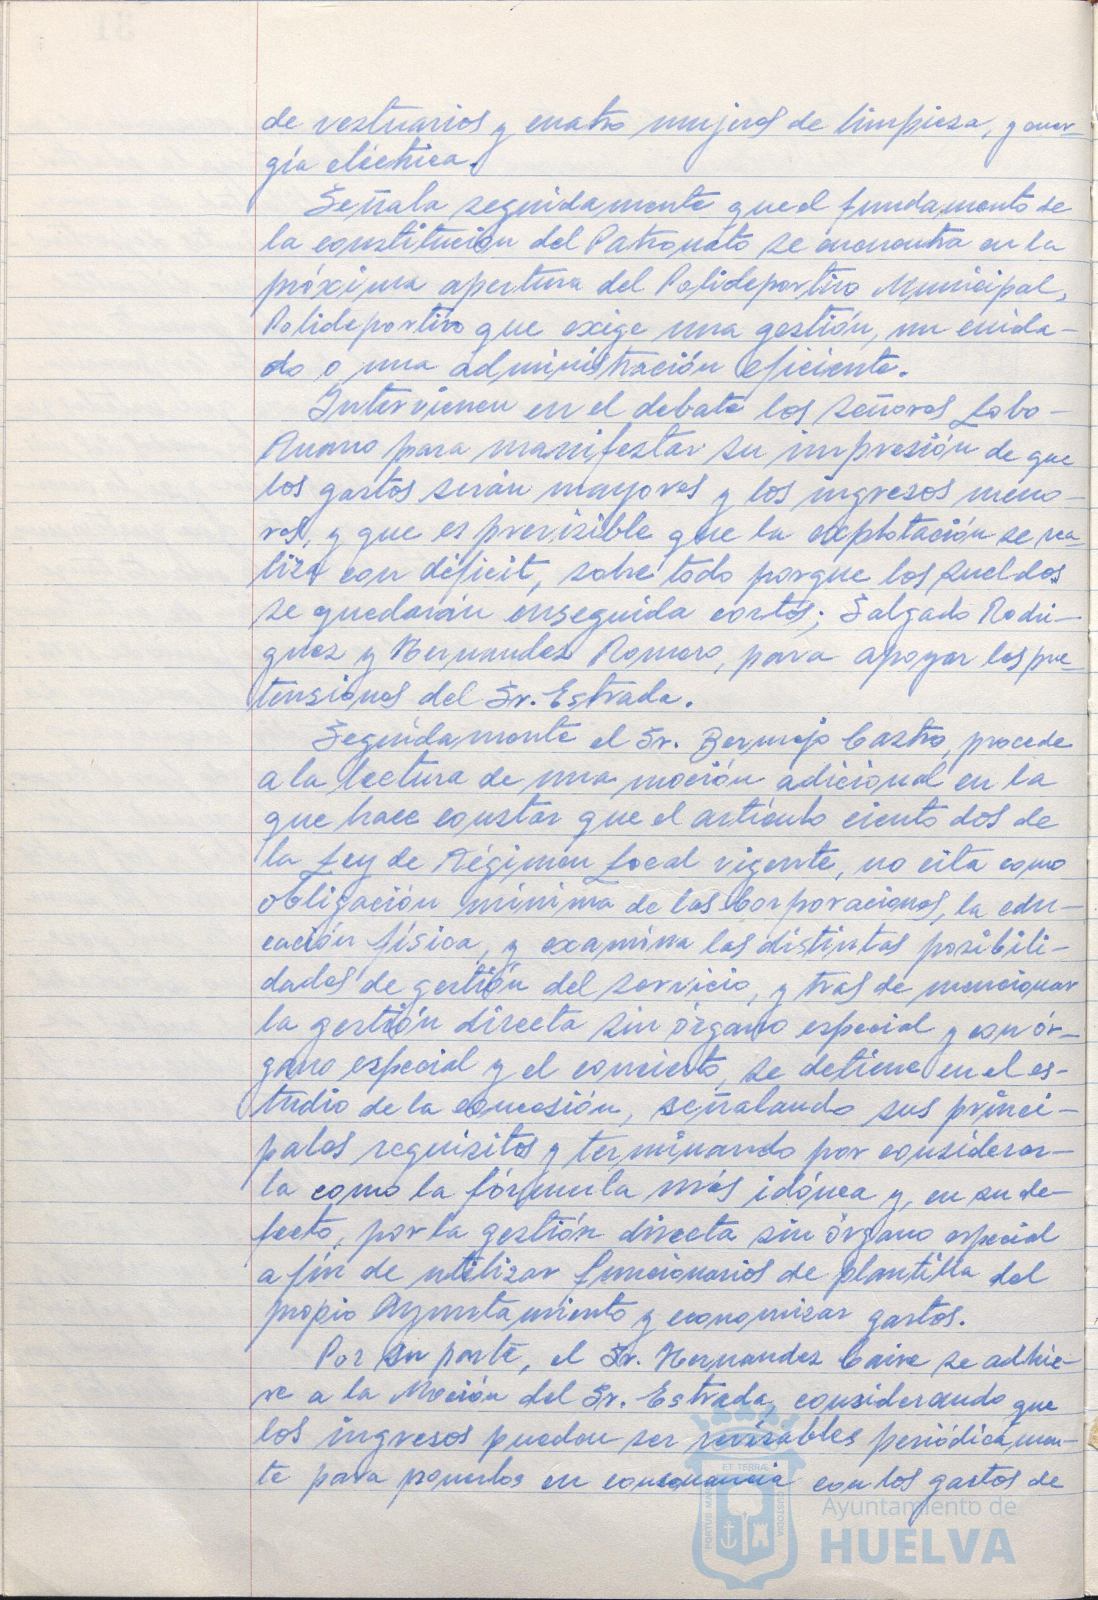 de vestuarios y cuatro mujeres de limpieza, y ener-
gía eléctrica.
Señala seguidamente que el fundamento de
la constitución del Patronato se encuentra en la
próxima apertura del Polideportivo Municipal,
Polideportivo que exige una gestión, un cuida-
do o una administración eficiente.
Intervienen en el debate los señores Lobo-
para manifestar su impresión de que
los gastos serán mayores y los ingresos meno-
res, y que es previsible que la explotación se rea-
liza con déficit, sobre todo porque los sueldos
se quedarán enseguida cortos; Salgado Rodri-
guez y Hernandez Romero, para apoyar las pre-
tensiones del Sr. Estrada.
Seguidamente el Sr. Bermejo Castro, procede
a la lectura de una moción adicional en la
que hace constar que el artículo ciento dos de
la Ley de Régimen Local vigente, no cita como
obligación mínima de las Corporaciones, la edu-
cación física, y examina las distintas posibili-
dades de gestión del servicio, y tras de mencionar
la gestión directa sin órgano especial y con ór-
gano especial y el concierto, se detiene en el es-
tudio de la concesión, señalando sus princi-
pales requisitos y terminando por considerar-
la como la fórmula más idónea y, en su de-
fecto, por la gestión directa sin órgano especial
a fin de utilizar funcionarios de plantilla del
propio Ayuntamiento y economizar gastos.
Por su parte, el Sr. Hernandez Caire se adhie-
re a la Moción del Sr. Estrada, considerando que
los ingresos pueden ser revisables periódicamen-
te para ponerlos en consonancia con los gastos de
PORTUS MARIS ET TERRAE CUSTODIA
Ayuntamiento de
HUELVA